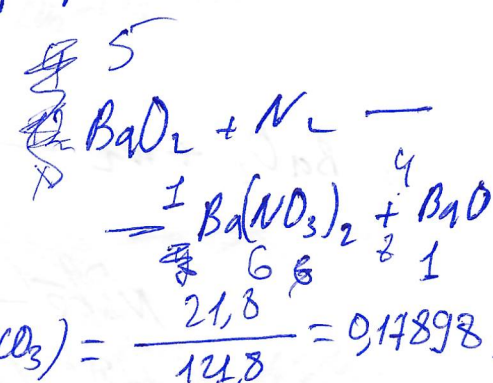 5
BaO₂ + N₂ —
4
— 1 Ba(NO₃)₂ + BaO
6 6 8 1
CO₃) = 21,8 / 121,8 = 0,17898